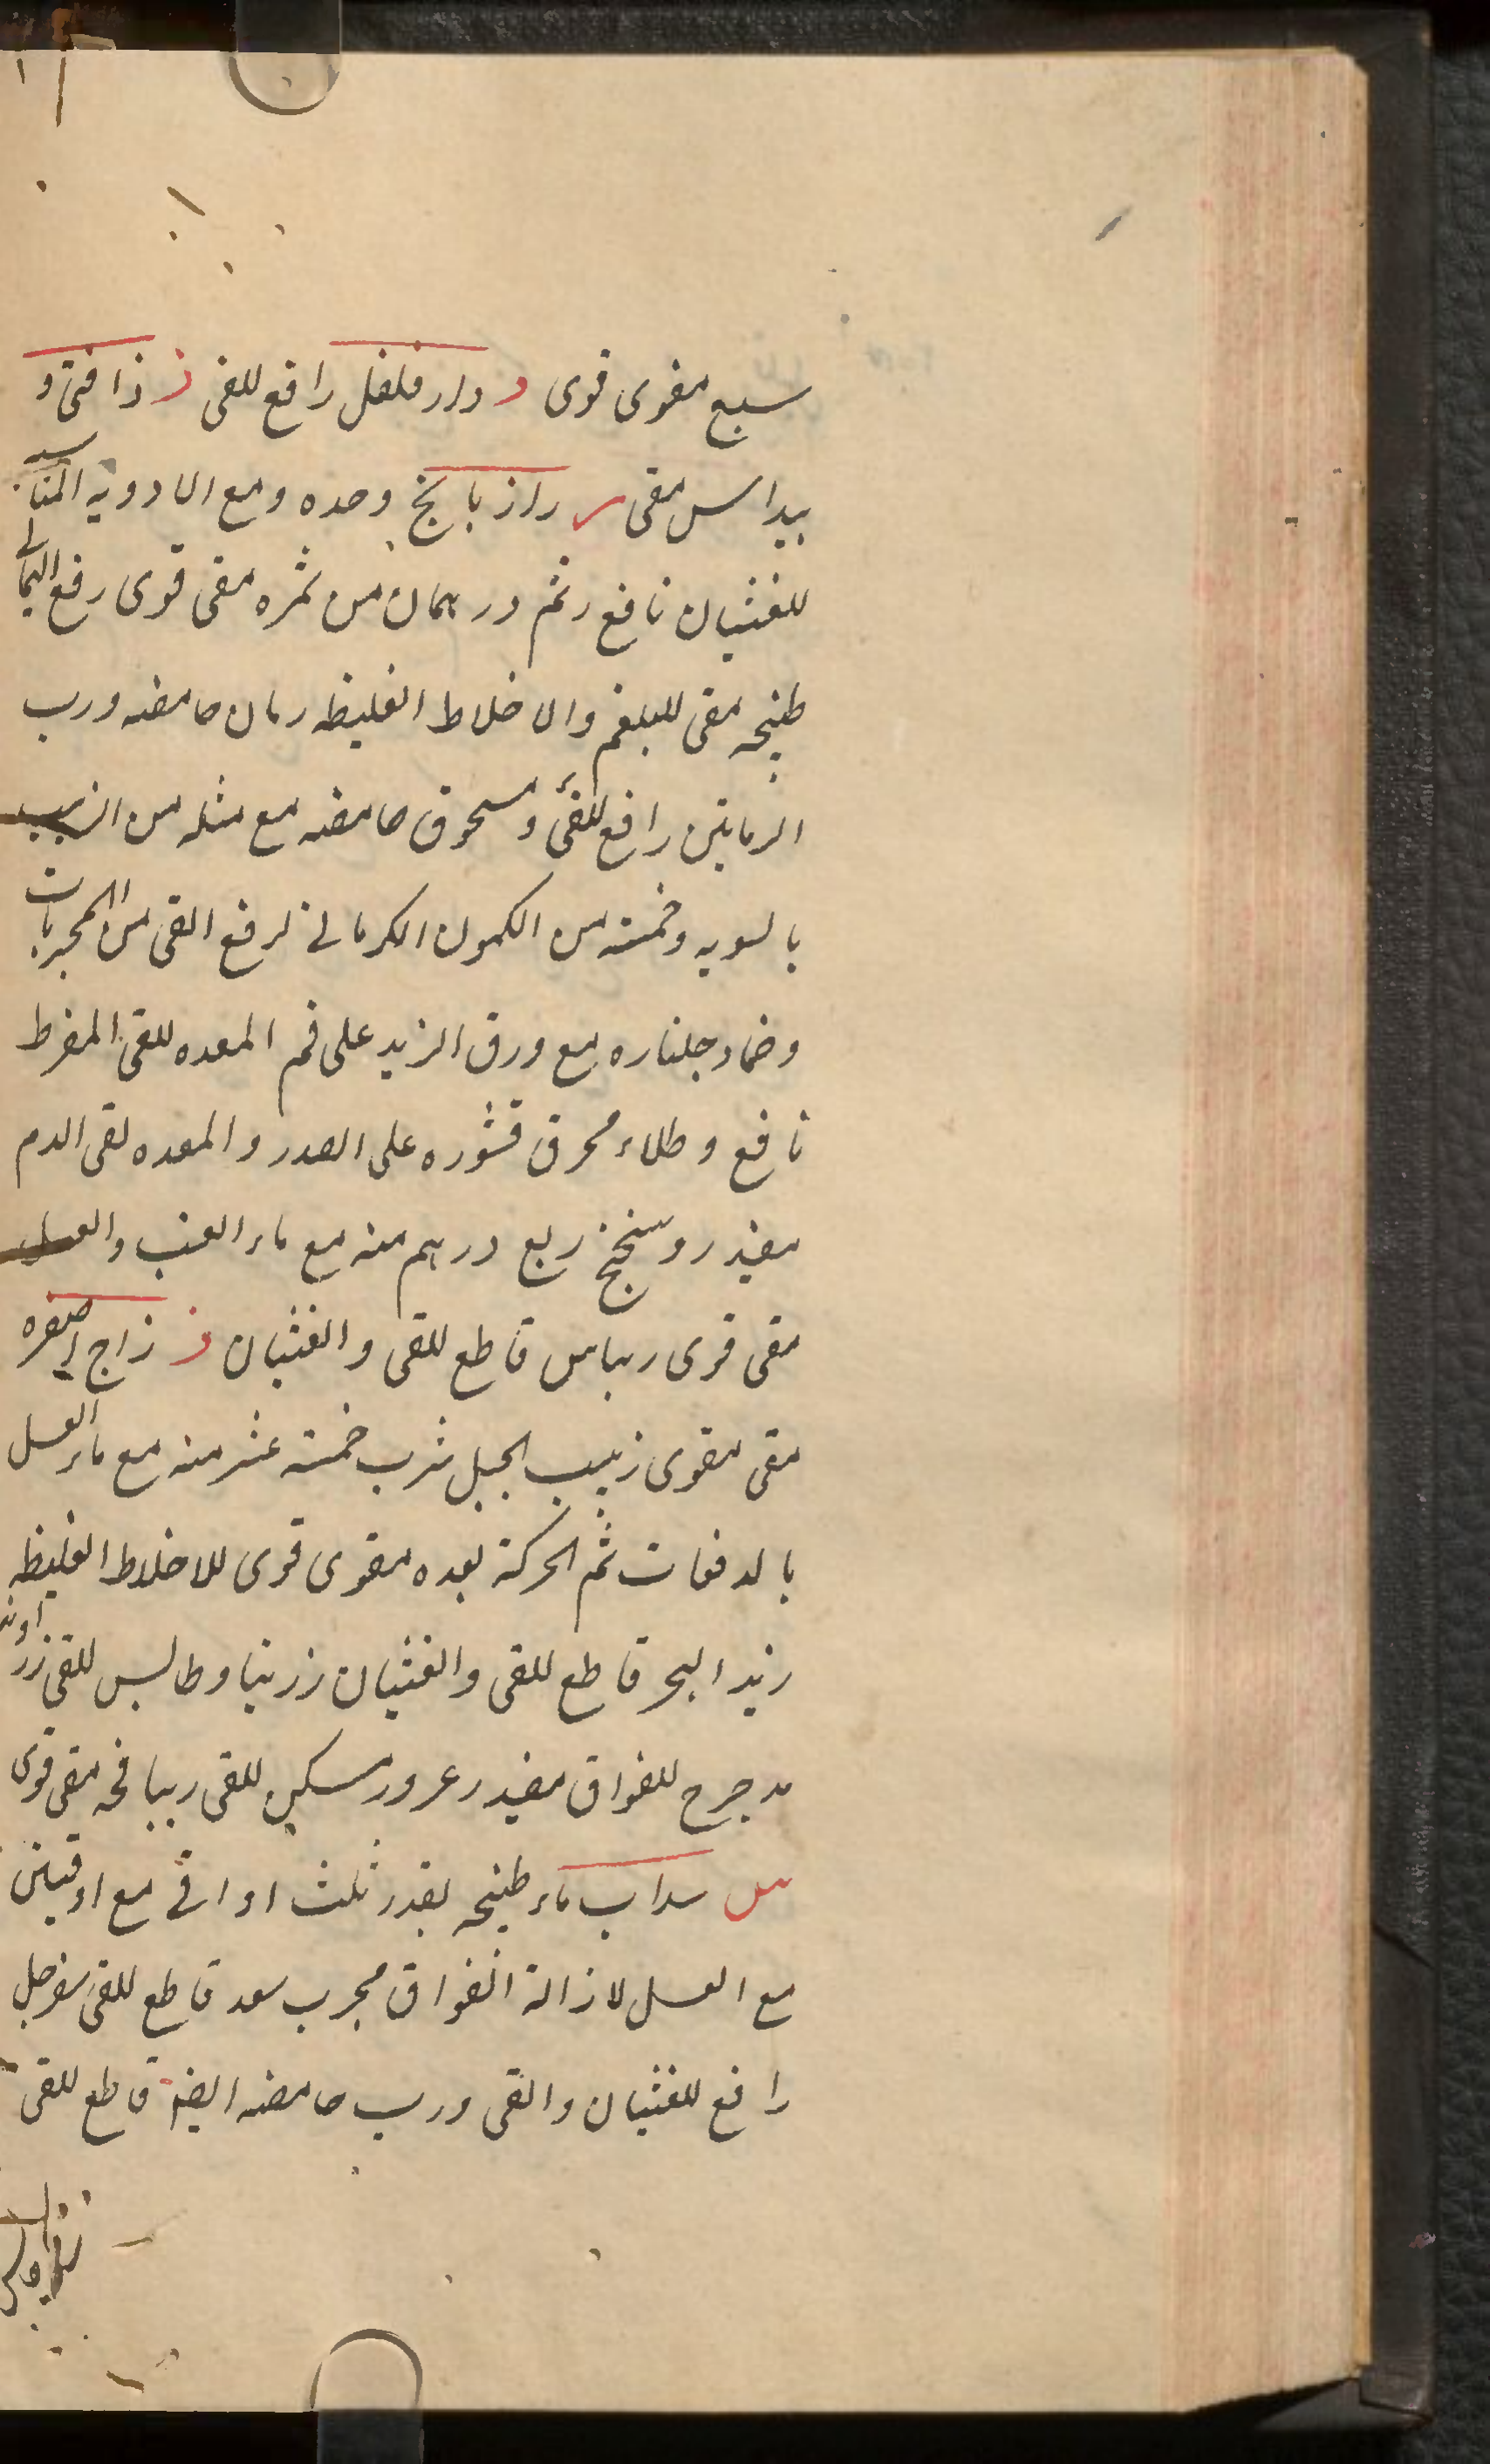 سبع مقوی قوی د دار فلفل رافع للقی ذ ذافنی و
بیداس مقی ر رازیانج وحده ومع الادویه المناسبه
للغثیان نافع رتم درهمان من ثمره مقی قوی رقع الیمانی
طبیخه مقی للبلغم والاخلاط الغلیظه رمان حامضه ورب
الرمانین رافع للقئ ومسحوق حامضه مع مثله من الزبیب
بالسویه وخمسه من الکمون الکرمانی لرفع القی من المجربات
وضماد جلناره مع ورق الزبد علی فم المعده للقی المفرط
نافع وطلاء محرق قشوره علی الصدر والمعده لقی الدم
مفید روسختج ربع درهم منه مع ماء العنب والعسل
مقی قوی ریباس قاطع للقی والغثیان ز زاج اصفره
مقی مقوی زبیب الجبل شرب خمسة عشر منه مع ماء العسل
بالدفعات ثم الحرکة بعده مقوی قوی للاخلاط الغلیظه
زبد البحر قاطع للقی والغثیان زرنبا وطالیس للقی زراوند
مدحرج للفواق مفید زعرور مسکن للقی مقی قوی
س سداب ماء طبیخه بقدر ثلث اواقی مع اوقیتین
مع العسل لازالة الفواق مجرب سعد قاطع للقی سفرجل
رافع للغثیان والقی ورب حامضه ایضا قاطع للقی